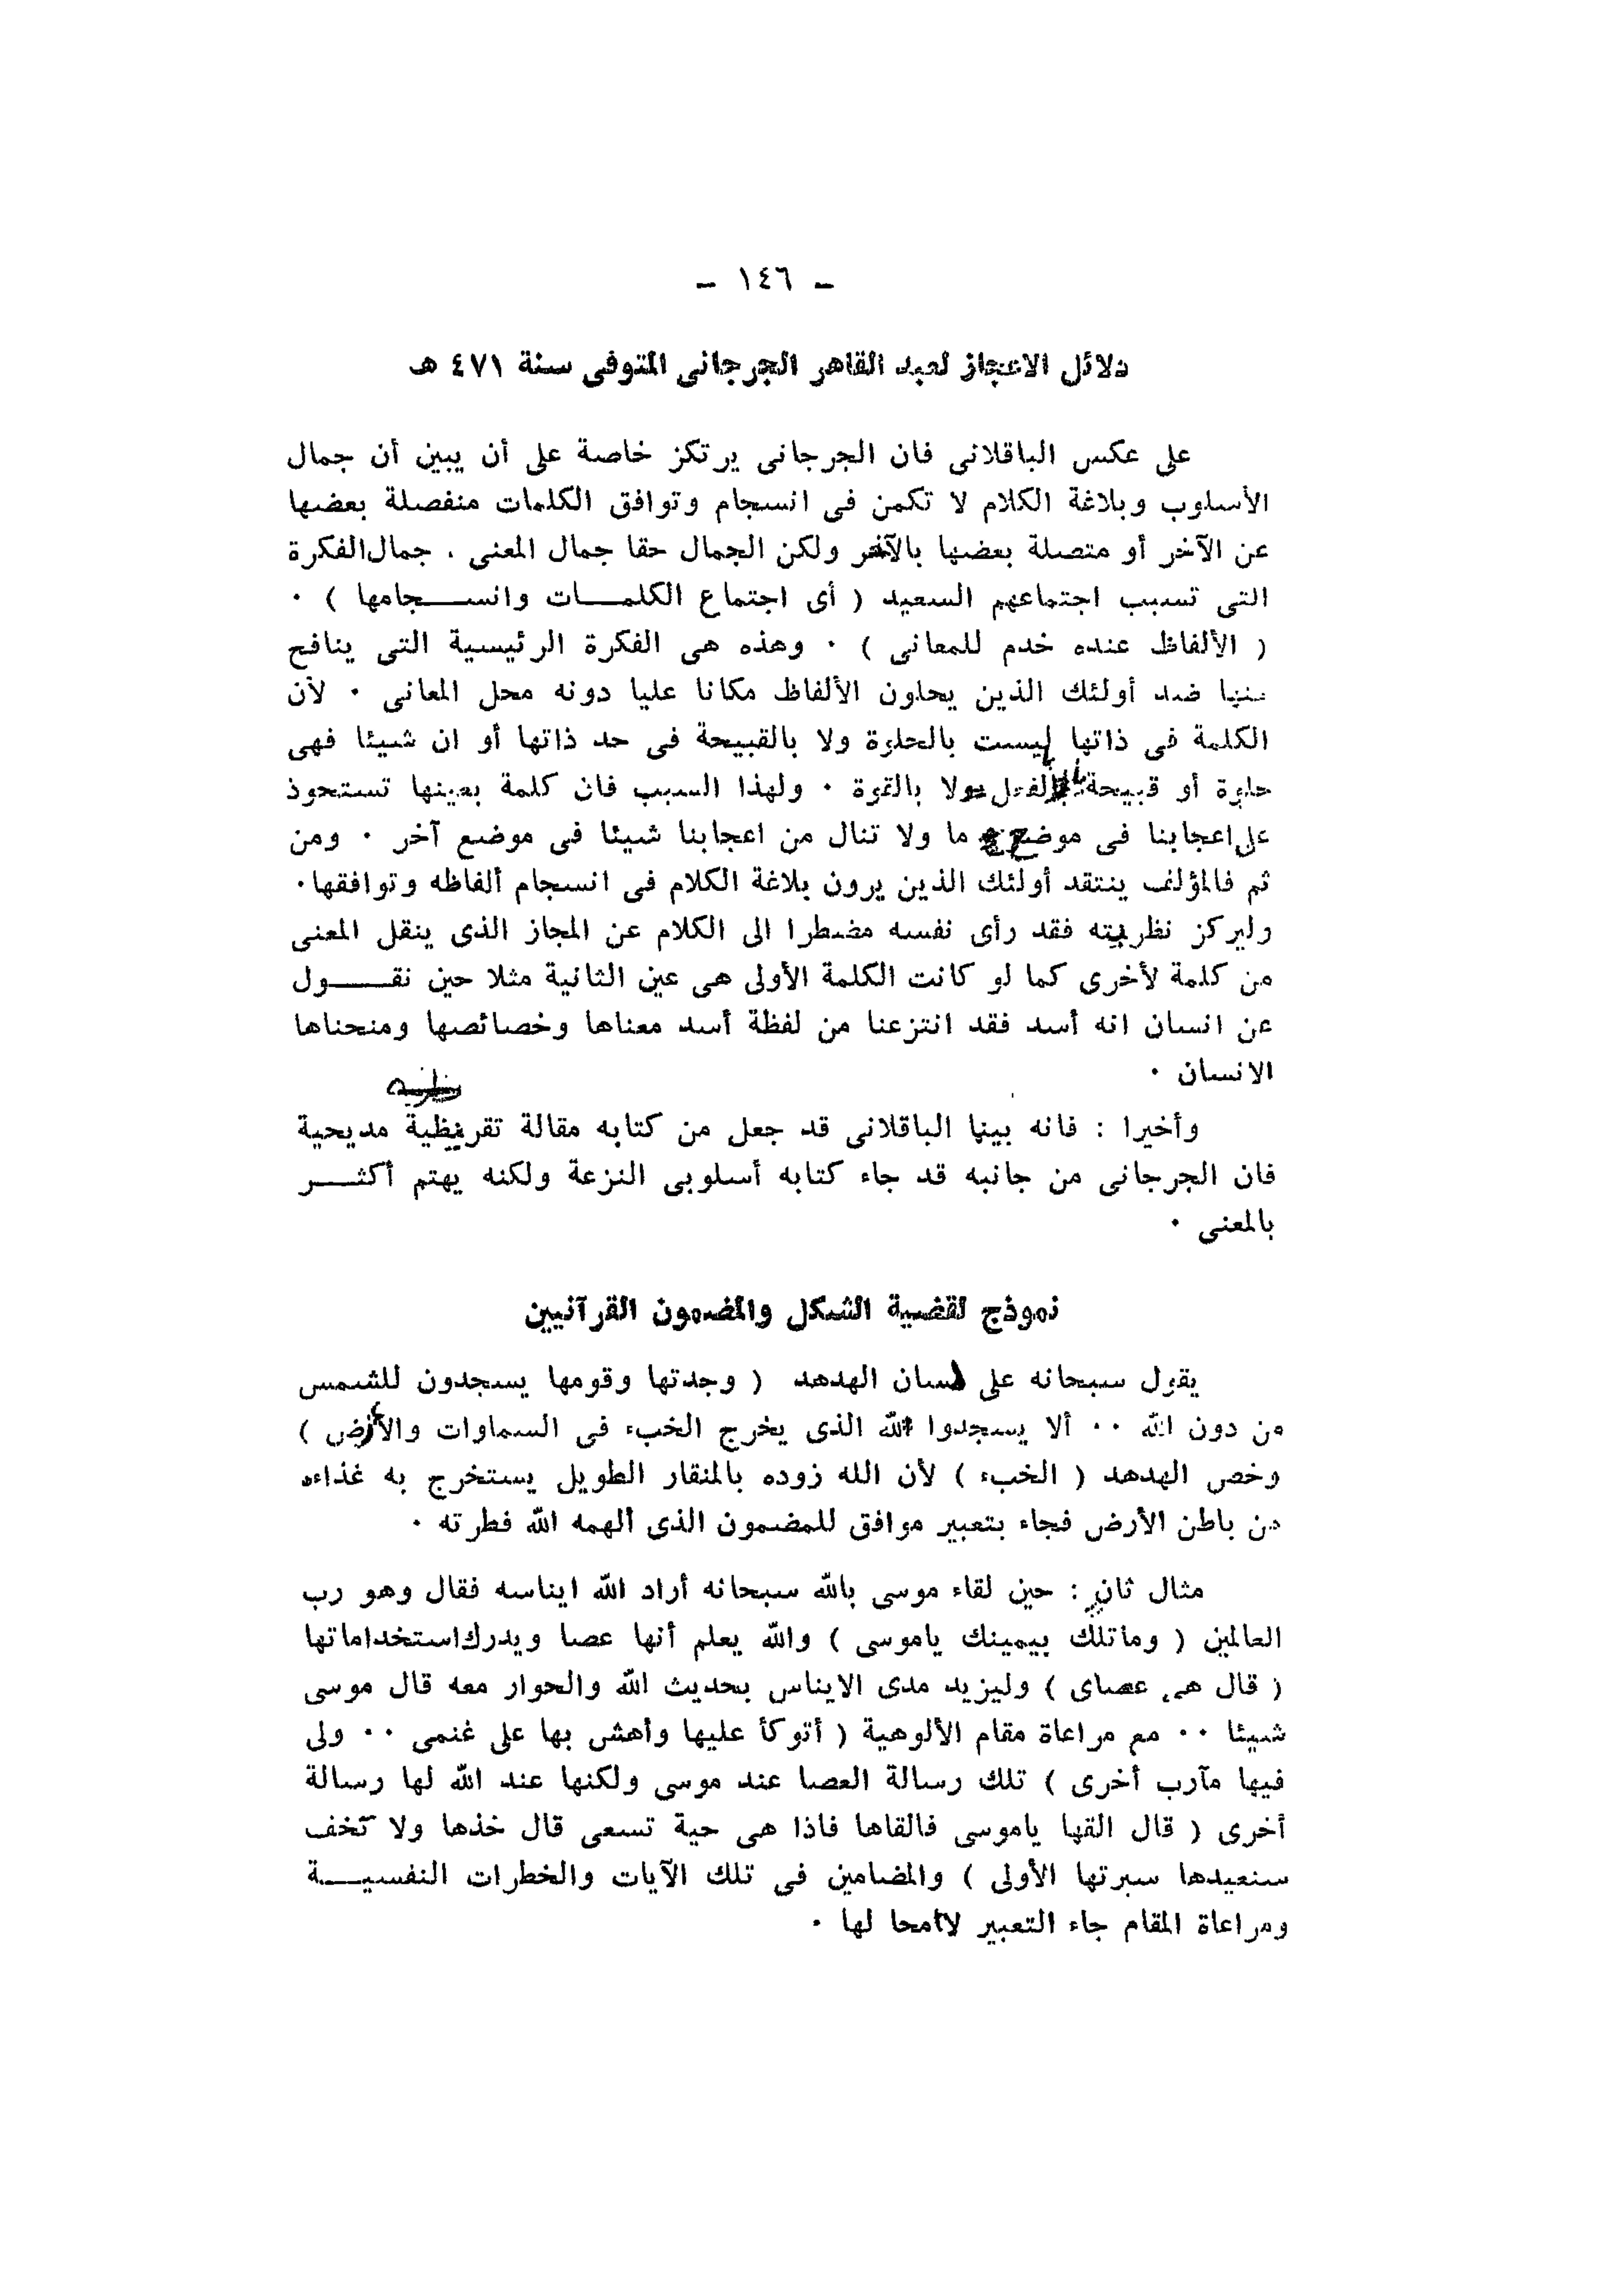 – ١٤٦ –
دلائل الاعجاز لعبد القاهر الجرجانى المتوفى سنة ٤٧١ هـ
على عكس الباقلانى فان الجرجانى يرتكز خاصة على أن يبين أن جمال
الأسلوب وبلاغة الكلام لا تكمن فى انسجام وتوافق الكلمات منفصلة بعضها
عن الآخر أو متصلة بعضها بالآخر ولكن الجمال حقا جمال المعنى . جمال الفكرة
التى تسبب اجتماعهم السعيد ( أى اجتماع الكلمـــات وانســـجامها ) ٠
( الألفاظ عنده خدم للمعانى ) ٠ وهذه هى الفكرة الرئيسية التى ينافح
ضد أولئك الذين يحلون الألفاظ مكانا عليا دونه محل المعانى ٠ لأن
الكلمة فى ذاتها ليست بالحلوة ولا بالقبيحة فى حد ذاتها أو ان شيئا فهى
حلوة أو قبيحة بالفعل ولا بالقوة ٠ ولهذا السبب فان كلمة بعينها تستحوذ
على اعجابنا فى موضع ما ولا تنال من اعجابنا شيئا فى موضع آخر ٠ ومن
ثم فالمؤلف ينتقد أولئك الذين يرون بلاغة الكلام فى انسجام ألفاظه وتوافقها٠
وليركز نظريته فقد رأى نفسه مضطرا الى الكلام عن المجاز الذى ينقل المعنى
من كلمة لأخرى كما لو كانت الكلمة الأولى هى عين الثانية مثلا حين نقـــول
عن انسان انه أسد فقد انتزعنا من لفظة أسد معناها وخصائصها ومنحناها
الانسان ٠
وأخيرا : فانه بينما الباقلانى قد جعل من كتابه مقالة تقريظية مديحية
فان الجرجانى من جانبه قد جاء كتابه أسلوبى النزعة ولكنه يهتم أكثـــر
بالمعنى ٠
نموذج لقضية الشكل والمضمون القرآنيين
يقول سبحانه على لسان الهدهد ( وجدتها وقومها يسجدون للشمس
من دون الله ٠٠ ألا يسجدوا لله الذى يخرج الخبء فى السماوات والأرض )
وخص الهدهد ( الخبء ) لأن الله زوده بالمنقار الطويل يستخرج به غذاءه
من باطن الأرض فجاء بتعبير موافق للمضمون الذى ألهمه الله فطرته ٠
مثال ثان : حين لقاء موسى بالله سبحانه أراد الله ايناسه فقال وهو رب
العالمين ( وماتلك بيمينك ياموسى ) والله يعلم أنها عصا ويدرك استخداماتها
( قال هى عصاى ) وليزيد مدى الايناس بحديث الله والحوار معه قال موسى
شيئا ٠٠ مع مراعاة مقام الألوهية ( أتوكأ عليها وأهش بها على غنمى ٠٠ ولى
فيها مآرب أخرى ) تلك رسالة العصا عند موسى ولكنها عند الله لها رسالة
أخرى ( قال القها ياموسى فالقاها فاذا هى حية تسعى قال خذها ولا تخف
سنعيدها سيرتها الأولى ) والمضامين فى تلك الآيات والخطرات النفسيـــة
ومراعاة المقام جاء التعبير لامحا لها ٠